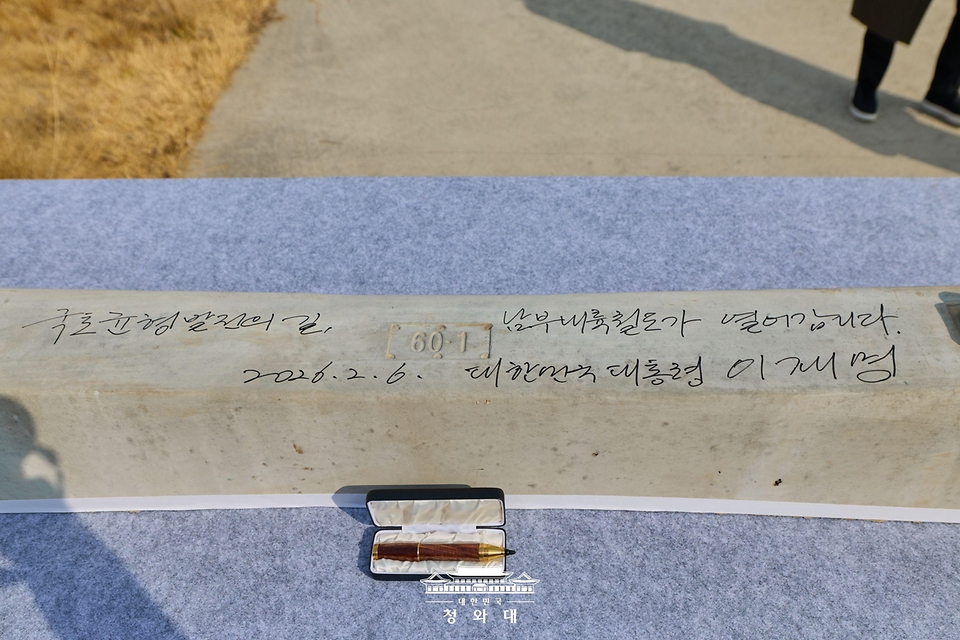 국토균형발전의 길, 남부내륙철도가 열어갑니다.
60-1
2026. 2. 6. 대한민국 대통령 이재명
대한민국
청와대